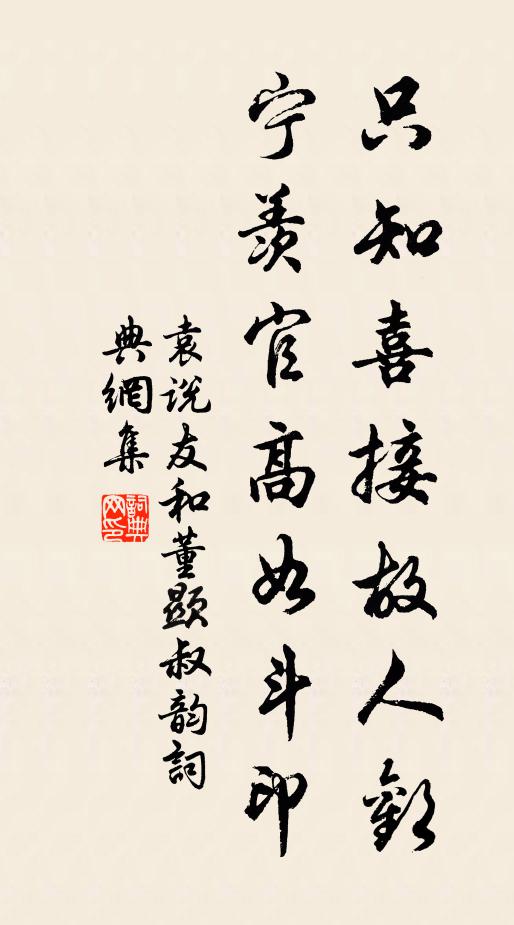 只知喜接故人歡
宁羨官高如斗印
袁说友和董顯叔韵詞
典網集
詞典網印